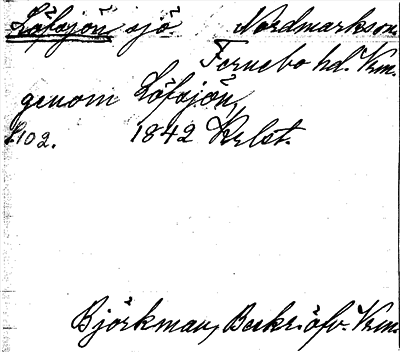 Löfsjön sjö. Nordmarks sn.
Fernebo hd. Vrm.
genom Löfsjön,
S.102. 1842 Krlst.
Björkman, Beskr. öfv. Vrm.